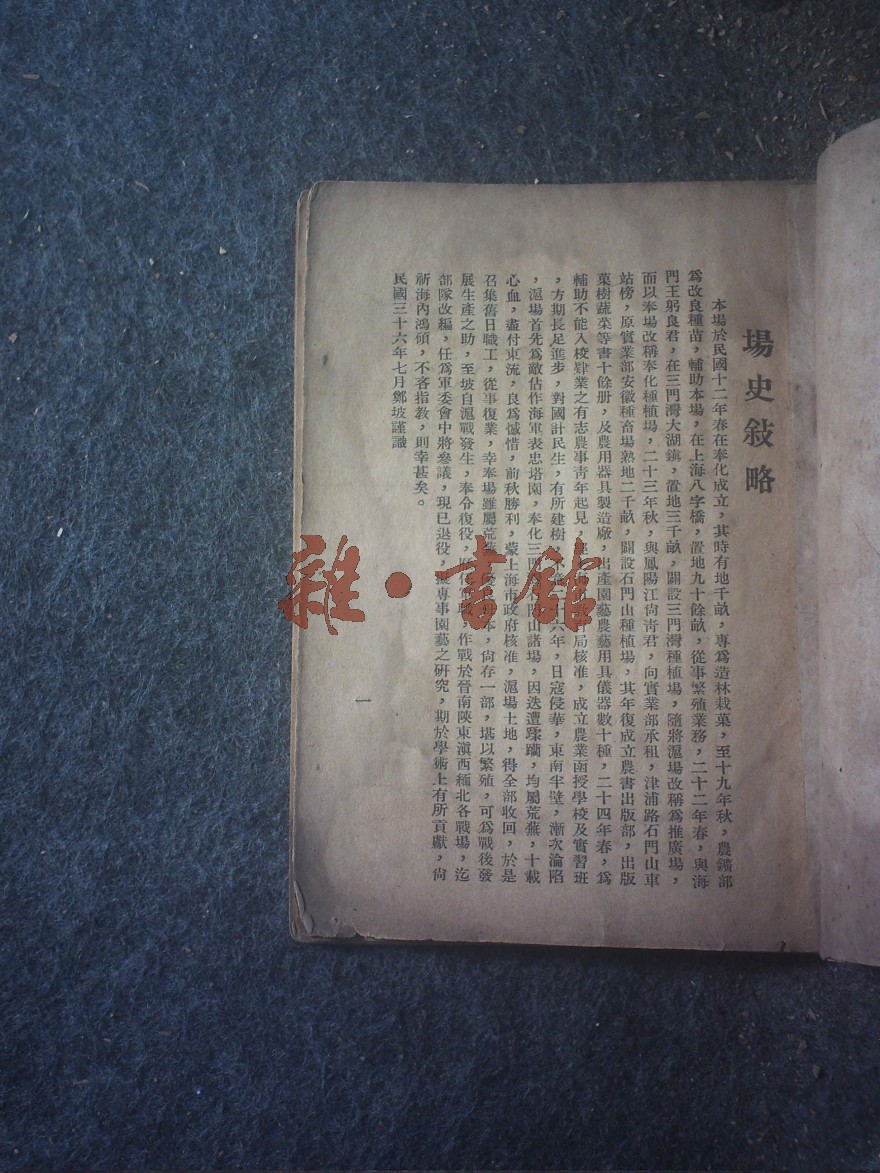 場史敍略
本場於民國十二年春在奉化成立，其時有地千畝，專爲造林栽菓，至十九年秋，農鑛部
爲改良種苗，輔助本場，在上海八字橋，置地九十餘畝，從事繁殖業務，二十二年春，與海
門王躬良君，在三門灣大湖鎮，置地三千畝，闢設三門灣種植場，隨將滬場改稱爲推廣場，
而以奉場改稱奉化種植場，二十三年秋，與鳳陽江尙靑君，向實業部承租，津浦路石門山車
站傍，原實業部安徽種畜場熟地二千畝，闢設石門山種植場，其年復成立農書出版部，出版
菓樹蔬菜等書十餘册，及農用器具製造廠，出產園藝農藝用具儀器數十種，二十四年春，爲
輔助不能入校肄業之有志農事靑年起見，局核准，成立農業函授學校及實習班
，方期長足進步，對國計民生，有所建樹，十六年，日寇侵華，東南半壁，漸次淪陷
，滬場首先爲敵佔作海軍表忠塔園，奉化三門山諸場，因迭遭蹂躪，均屬荒蕪，十載
心血，盡付東流，良爲憾惜，前秋勝利，蒙上海市政府核准，滬場土地，得全部收回，於是
召集舊日職工，從事復業，幸奉場雖屬荒蕪，本，尙存一部，堪以繁殖，可爲戰後發
展生產之助，至坡自滬戰發生，奉令復役，作戰於晉南陝東滇西緬北各戰場，迄
部隊改編，任爲軍委會中將參議，現已退役，專事園藝之研究，期於學術上有所貢獻，尙
祈海內鴻碩，不吝指教，則幸甚矣。
民國三十六年七月鄭坡謹識
一
雜·書館